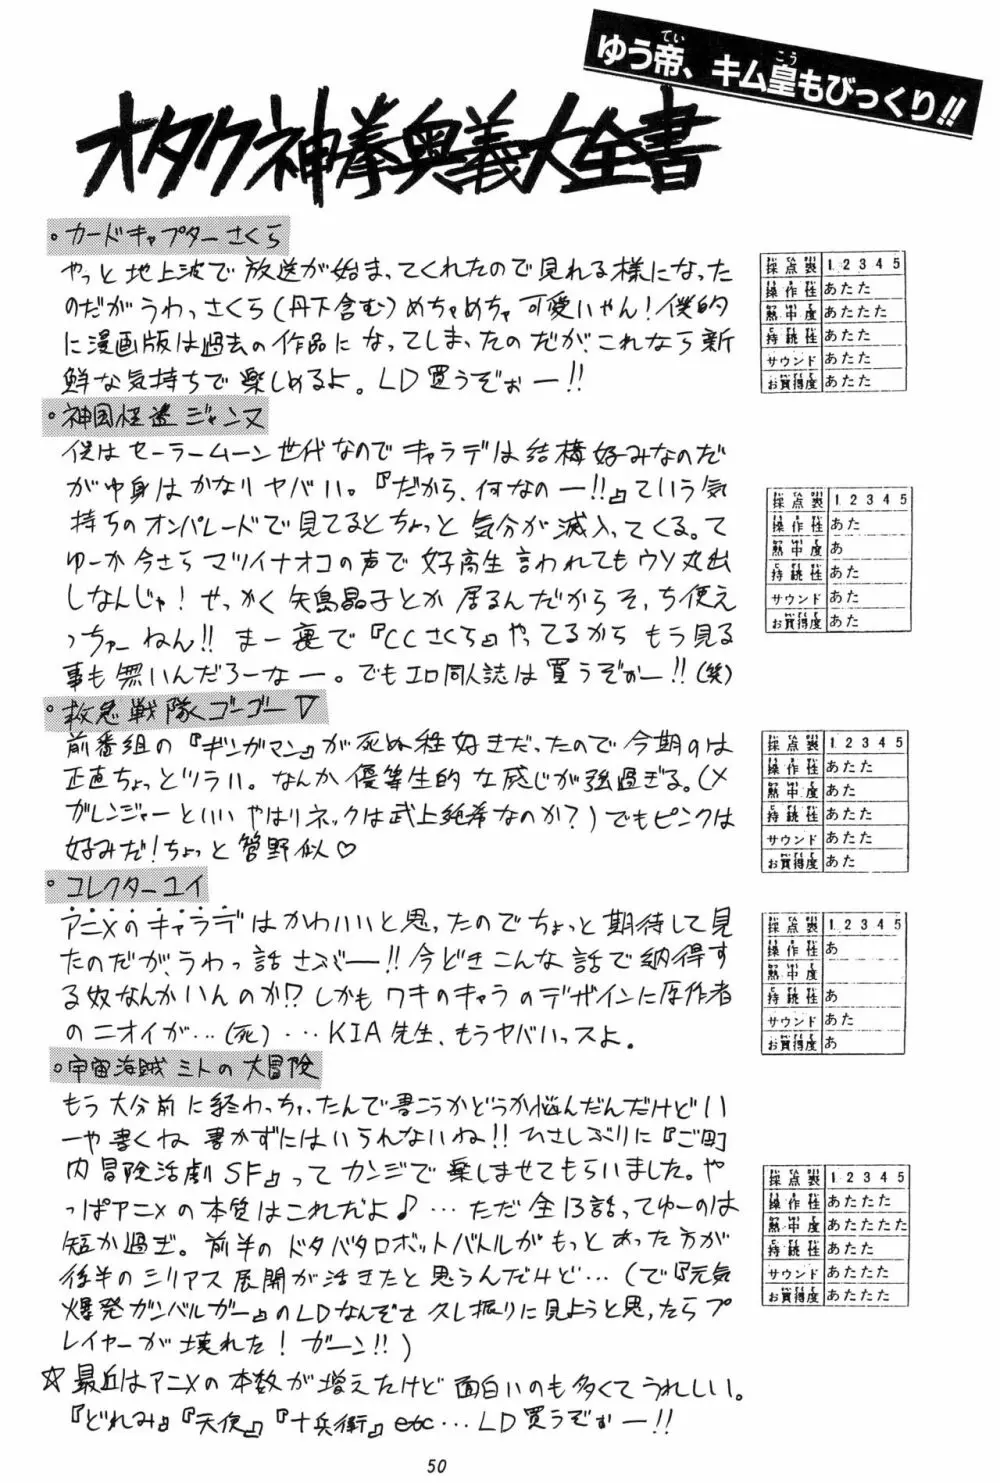 ゆう帝、キム皇もびっくり!!
てい
こう
オタク神拳奥義大全書
。カードキャプターさくら
やっと地上波で放送が始まってくれたので見れる様になった
のだがうわっさくら(丹下含む)めちゃめちゃ可愛いやん!僕的
に漫画版は過去の作品になってしまったのだが、これなら新
鮮な気持ちで楽しめるよ。LD買うぞぉー!!
採点表 1 2 3 4 5
操作性 あたた
熱中度 あたたた
持続性 あたた
サウンド あたた
お買得度 あたた
。神風怪盗ジャンヌ
僕はセーラームーン世代なのでキャラデは結構好みなのだ
が中身はかなりヤバい。『だから、何なのー!!』ていう気
持ちのオンパレードで見てるとちょっと気分が滅入ってくる。て
ゆーか今さらマツイナオコの声で女子高生言われてもウソ丸出
しなんじゃ!せっかく矢島晶子とか居るんだからそっち使え
っちゃーねん!!まー裏で『CCさくら』やってるからもう見る
事も無いんだろーなー。でもエロ同人誌は買うぞぉー!!(笑)
採点表 1 2 3 4 5
操作性 あた
熱中度 あ
持続性 あた
サウンド あた
お買得度 あた
。救急戦隊ゴーゴーV
前番組の『ギンガマン』が死ぬ程好きだったので今期のは
正直ちょっとツライ。なんか優等生的な感じが強過ぎる。(メ
ガレンジャーといいやはりネックは武上純希なのか?)でもピンクは
好みだ!ちょっと菅野似♡
採点表 1 2 3 4 5
操作性 あたた
熱中度 あた
持続性 あたた
サウンド あたた
お買得度 あた
。コレクターユイ
アニメのキャラデはかわいいと思ったのでちょっと期待して見
たのだが、うわっ話さぶー!!今どきこんな話で納得す
る奴なんかいんのか!?しかもワキのキャラのデザインに原作者
のニオイが…(死)…KIA先生、もうヤバいっスよ。
採点表 1 2 3 4 5
操作性 あ
熱中度
持続性 あ
サウンド あた
お買得度 あ
。宇宙海賊ミトの大冒険
もう大分前に終わっちゃったんで書こうかどうか悩んだんだけどい
ーや書くね書かずにはいられないね!!ひさしぶりに『ご町
内冒険活劇SF』ってカンジで楽しませてもらいました。や
っぱアニメの本質はこれだよ♪…ただ全13話ってゆーのは
短か過ぎ。前半のドタバタロボットバトルがもっとあった方が
後半のシリアス展開が活きたと思うんだけど…(で『元気
爆発ガンバルガー』のLDなんぞを久し振りに見ようと思ったらプ
レイヤーが壊れた!ガーン!!)
採点表 1 2 3 4 5
操作性 あたたた
熱中度 あたたたた
持続性 あたた
サウンド あたたた
お買得度 あたたた
☆最近はアニメの本数が増えたけど面白いのも多くてうれしい。
『どれみ』『天使』『十兵衛』etc…LD買うぞぉー!!
50